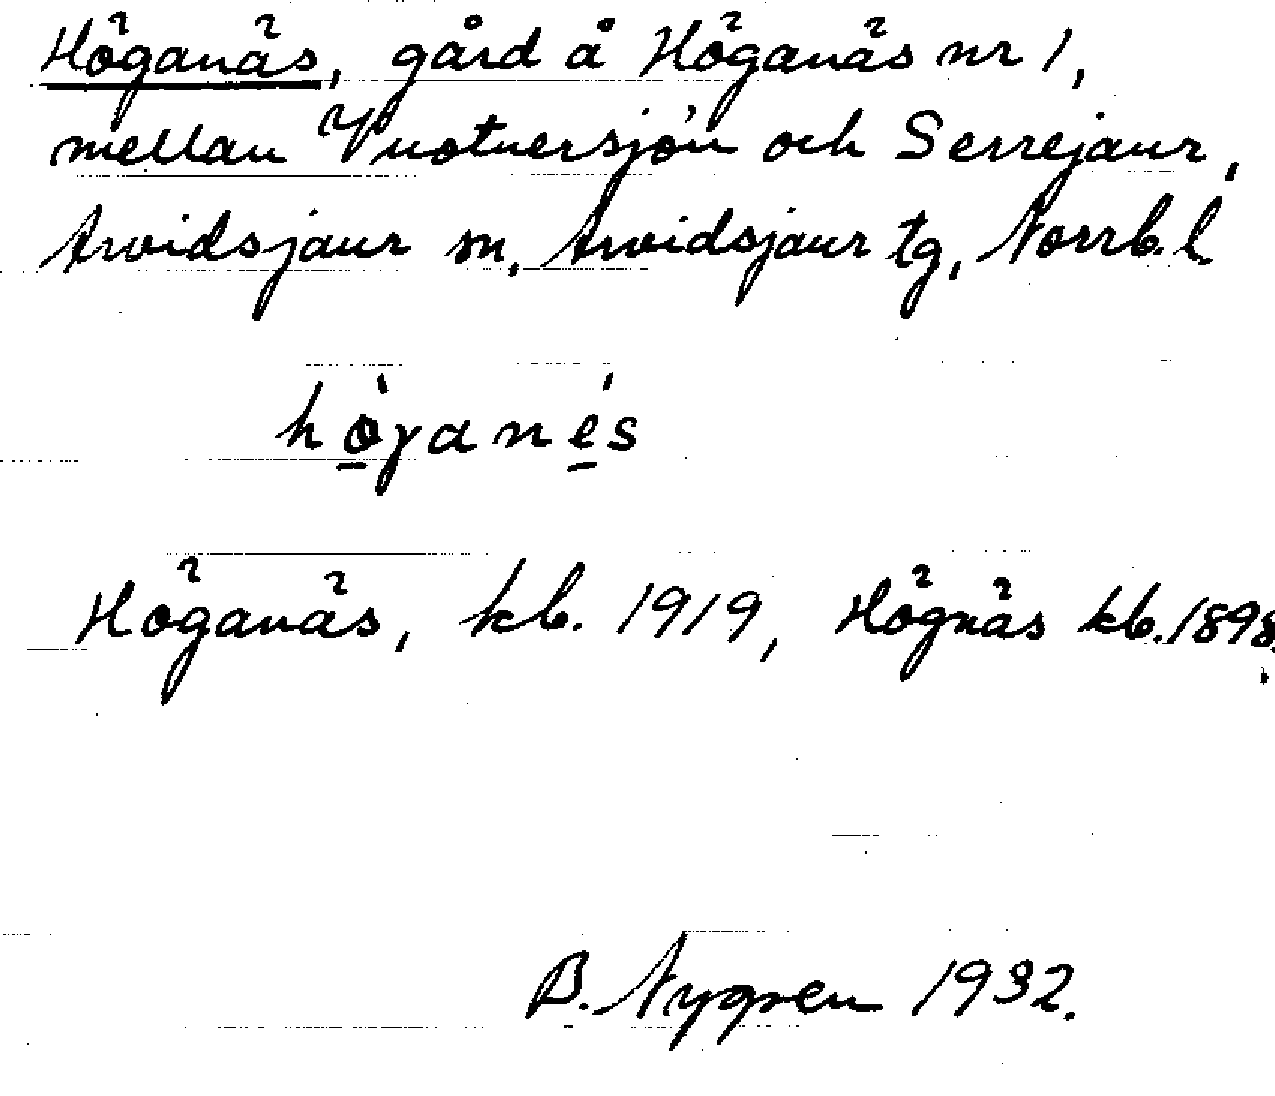 Höganäs, gård å Höganäs nr 1,
mellan Vuotnersjön och Serrejaur,
Arvidsjaur sn, Arvidsjaur tg, Norrb. l.
hö̱̀ɣanè̱́s
Höganäs, kb. 1919, Högnäs kb. 1898.
B. Nygren 1932.